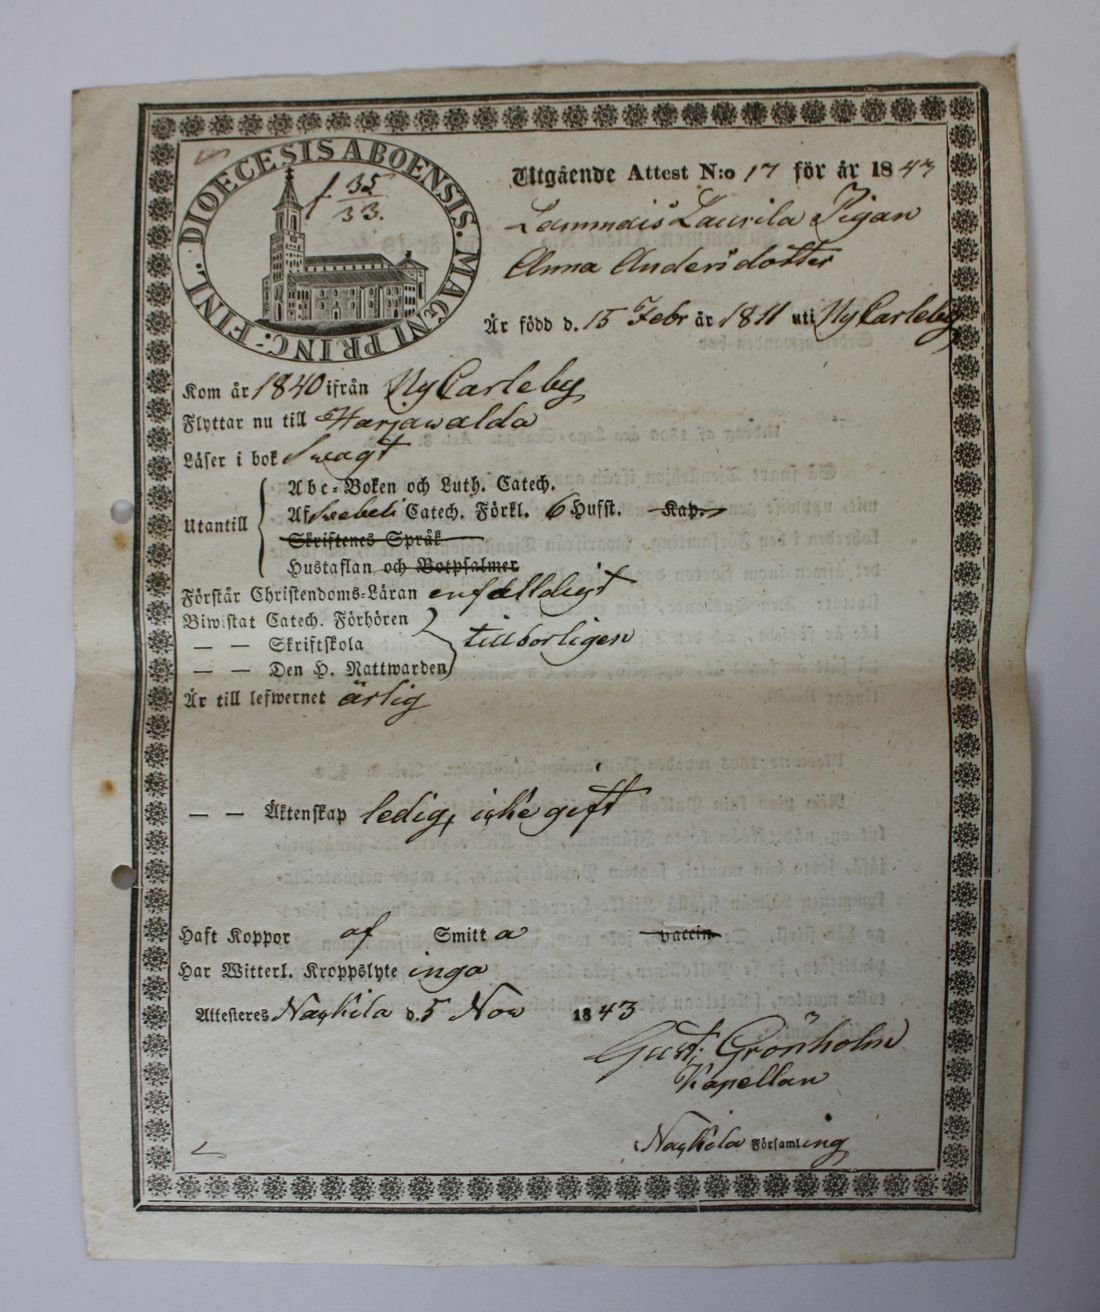 DIOECESIS ABOENSIS. MAGNI PRINC: FINL.
f 35
33.
Utgående Attest N:o 17 för år 1843
Lammais Laurila Pigan
Anna Andersdotter
Är född d. 15 Febr år 1811 uti Ny Carleby
Kom år 1840 ifrån Ny Carleby
Flyttar nu till Harjawalda
Läser i bok Swagt
Utantill
Abc-Boken och Luth. Catech.
Af Svebeli Catech. Förkl. 6 Hufst. Kap.
Skriftenes Språk
Hustaflan och Botpsalmer
Förstår Christendoms-Läran enfalldigt
Biwistat Catech. Förhören
— — Skriftskola tillborligen
— — Den H. Nattwarden
Är till lefwernet ärlig
— — Äktenskap ledig, icke gift
Haft Koppor af Smitta vaccin
Har Witterl. Kroppslyte inga
Attesteres Nakkila d. 5 Nov 1843
Gust. Grönholm
Kapellan
i Nakkila Församling